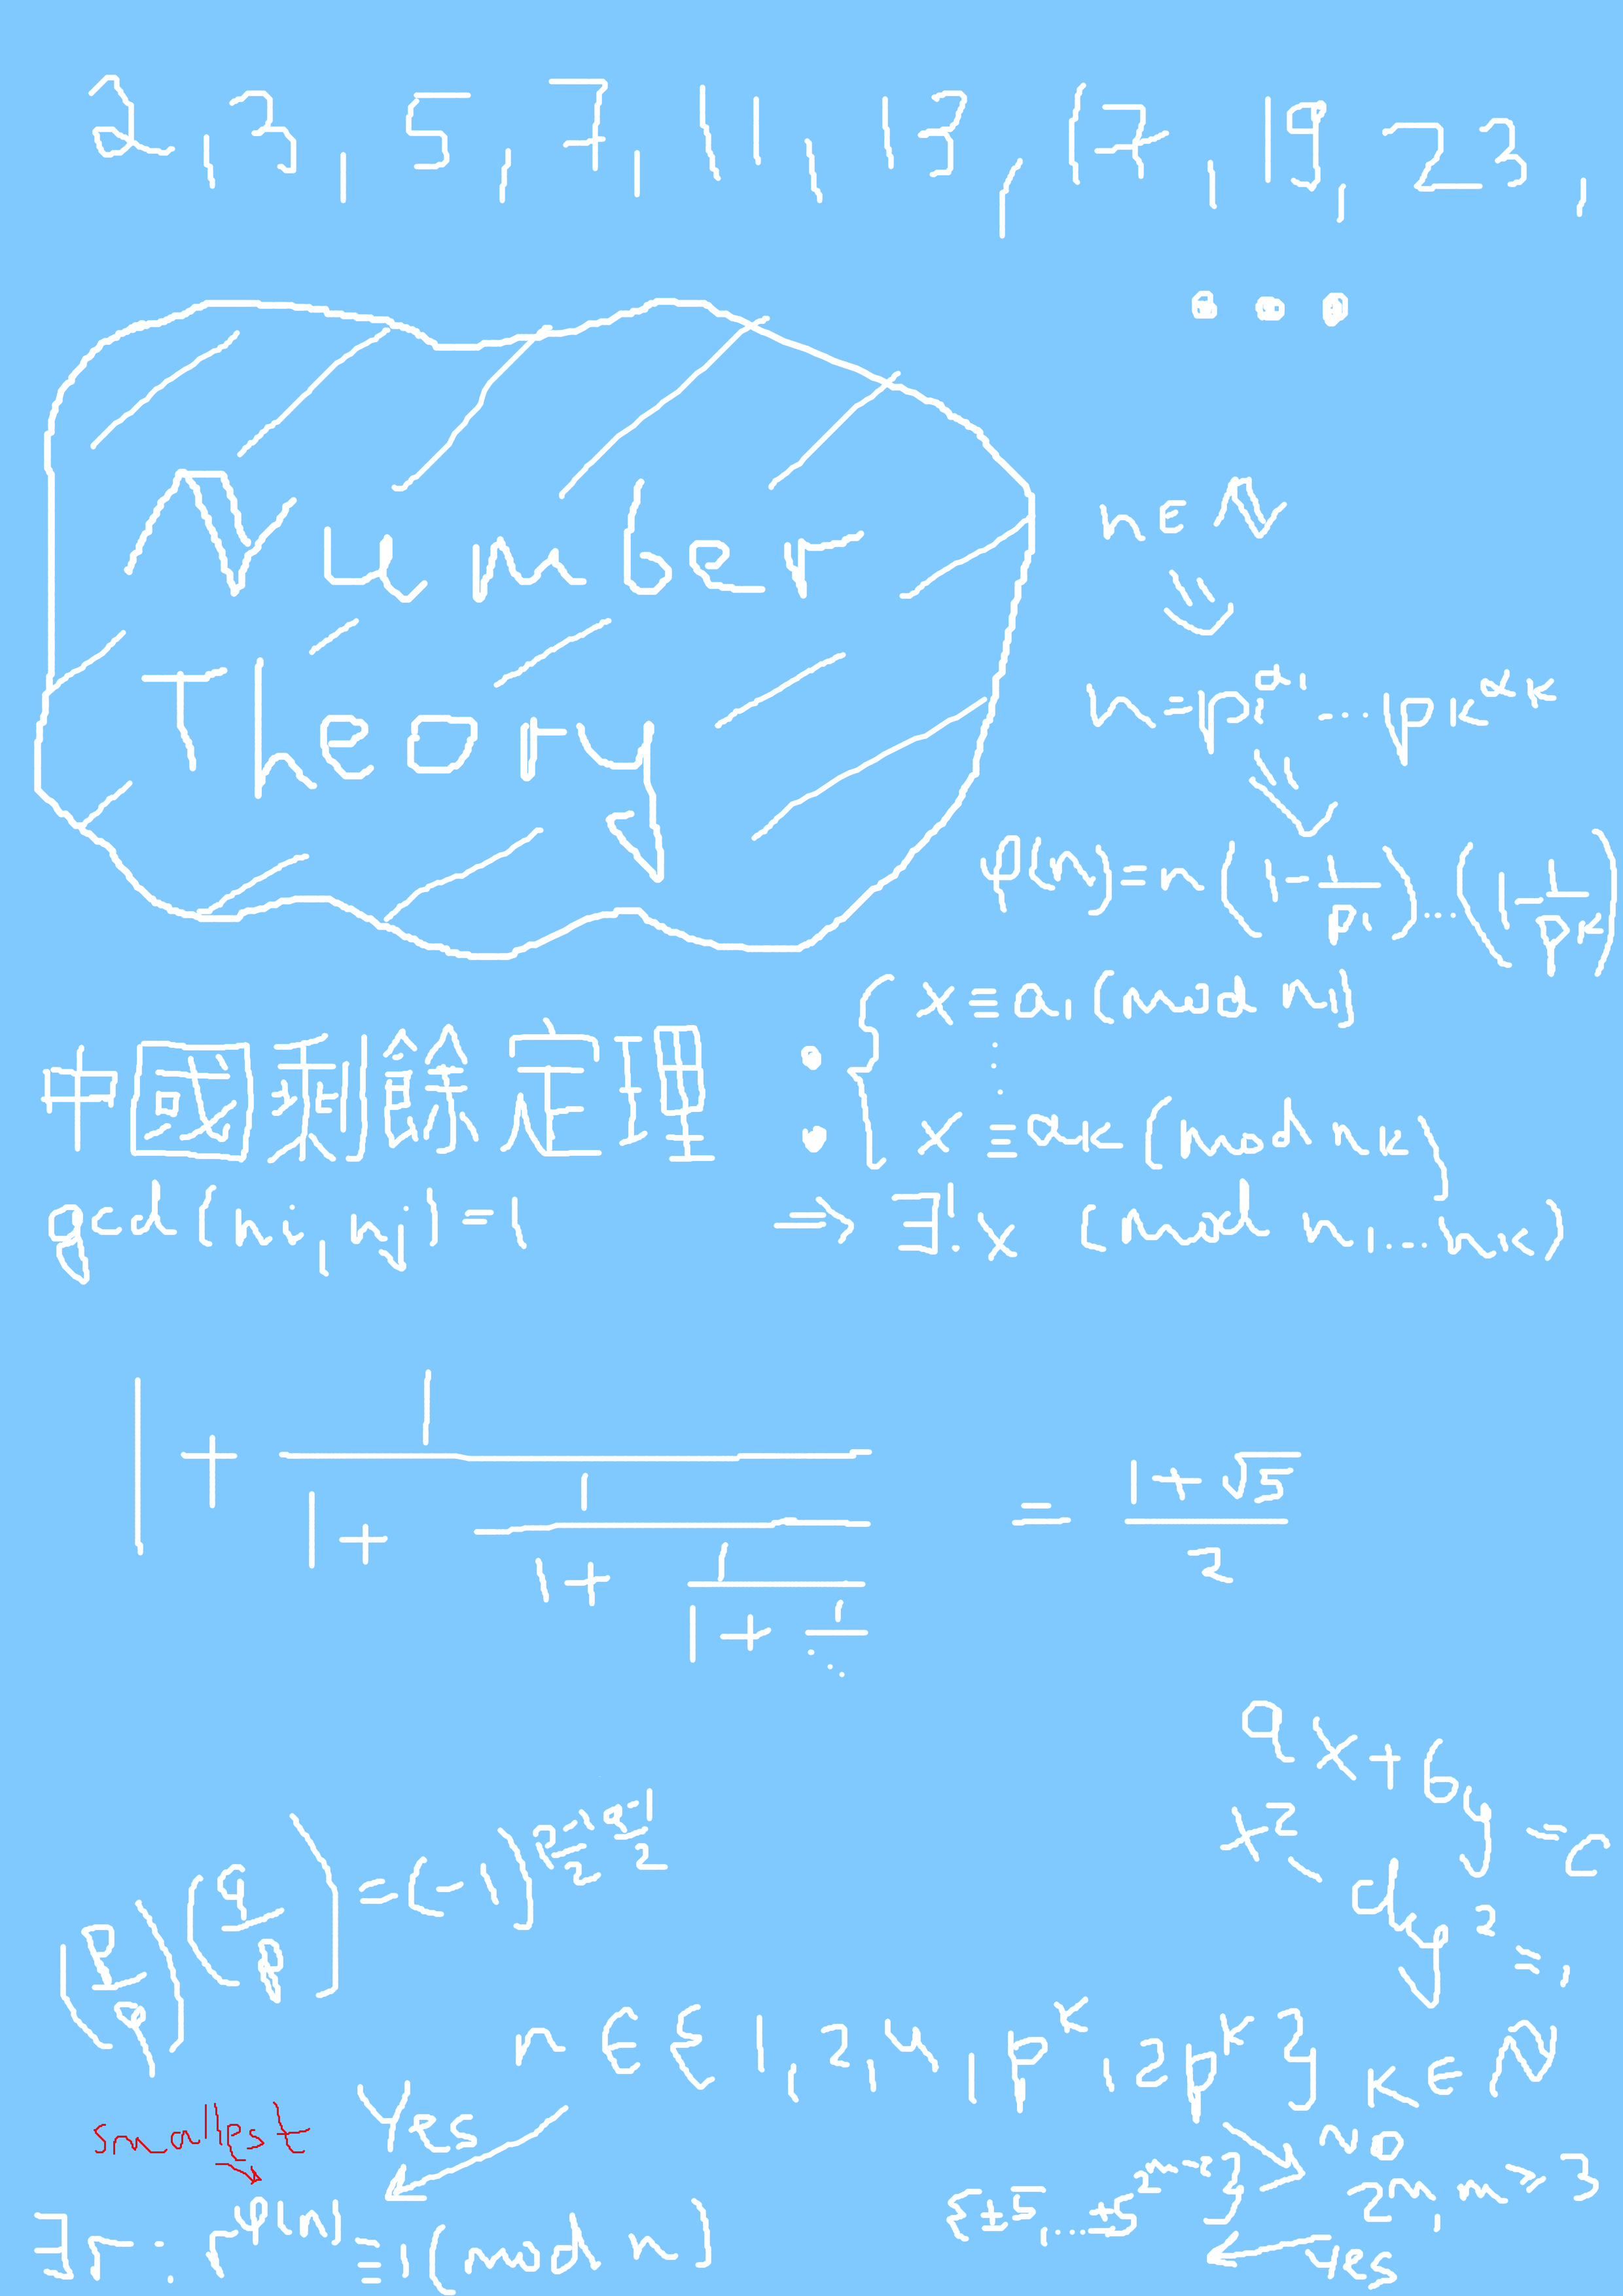 2, 3, 5, 7, 11, 13, 17, 19, 23,
...
Number
Theory
n ∈ N
n = p₁^α₁ ... pₖ^αₖ
φ(n) = n (1 - 1/p₁) ... (1 - 1/pₖ)
中國剩餘定理 :
{ x ≡ a₁ (mod n₁)
⋮
x ≡ aₖ (mod nₖ)
gcd(nᵢ, nⱼ) = 1 ⇒ ∃! x (mod n₁...nₖ)
1 + 1/(1 + 1/(1 + 1/(1 + 1/⋱))) = (1 + √5)/2
ax + by = c
x² - dy² = 1
(p/q)(q/p) = (-1)^((p-1)/2 · (q-1)/2)
n ∈ {1, 2, 4, pᵏ, 2pᵏ} k ∈ N
Yes
No
smallest
2ᵐ, m ≥ 3
{±5, ... ±5^(2^(m-2))}
Yes
∃r : r^φ(n) ≡ 1 (mod n)